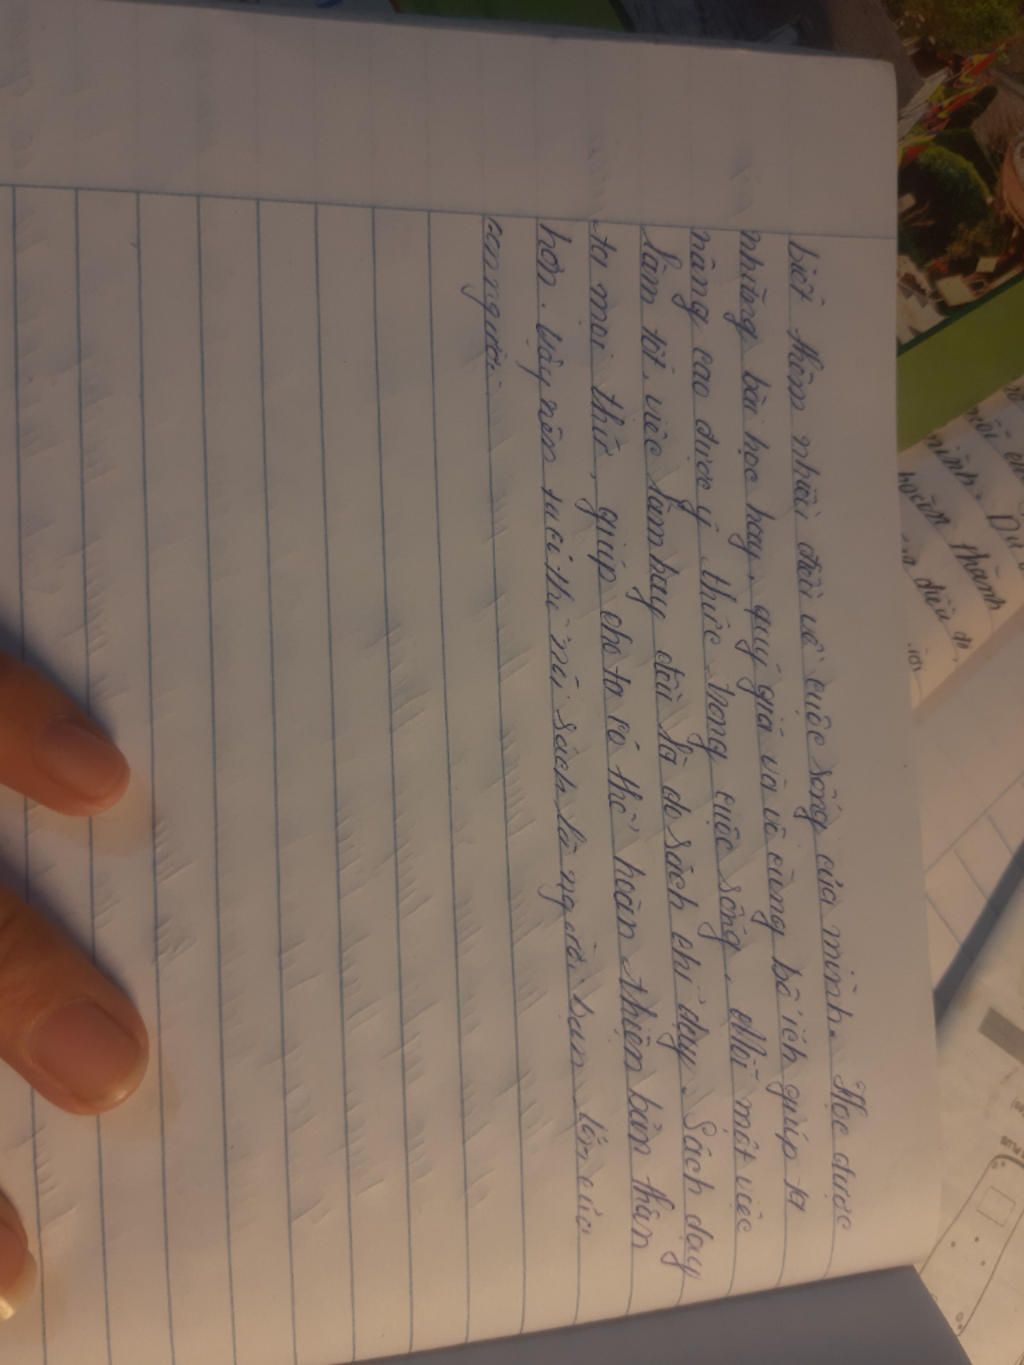 biết thêm nhiều điều về cuộc sống của mình. Học được
những bài học hay, quý giá và vô cùng bổ ích giúp ta
nâng cao được ý thức trong cuộc sống. Mỗi một việc
làm tốt, việc làm hay đều là do sách chỉ dạy. Sách dạy
ta mọi thứ, giúp cho ta có thể hoàn thiện bản thân
hơn. Vậy nên ta có thể nói sách là người bạn lớn của
con người
minh. Dù
hoàn thành
điều đó